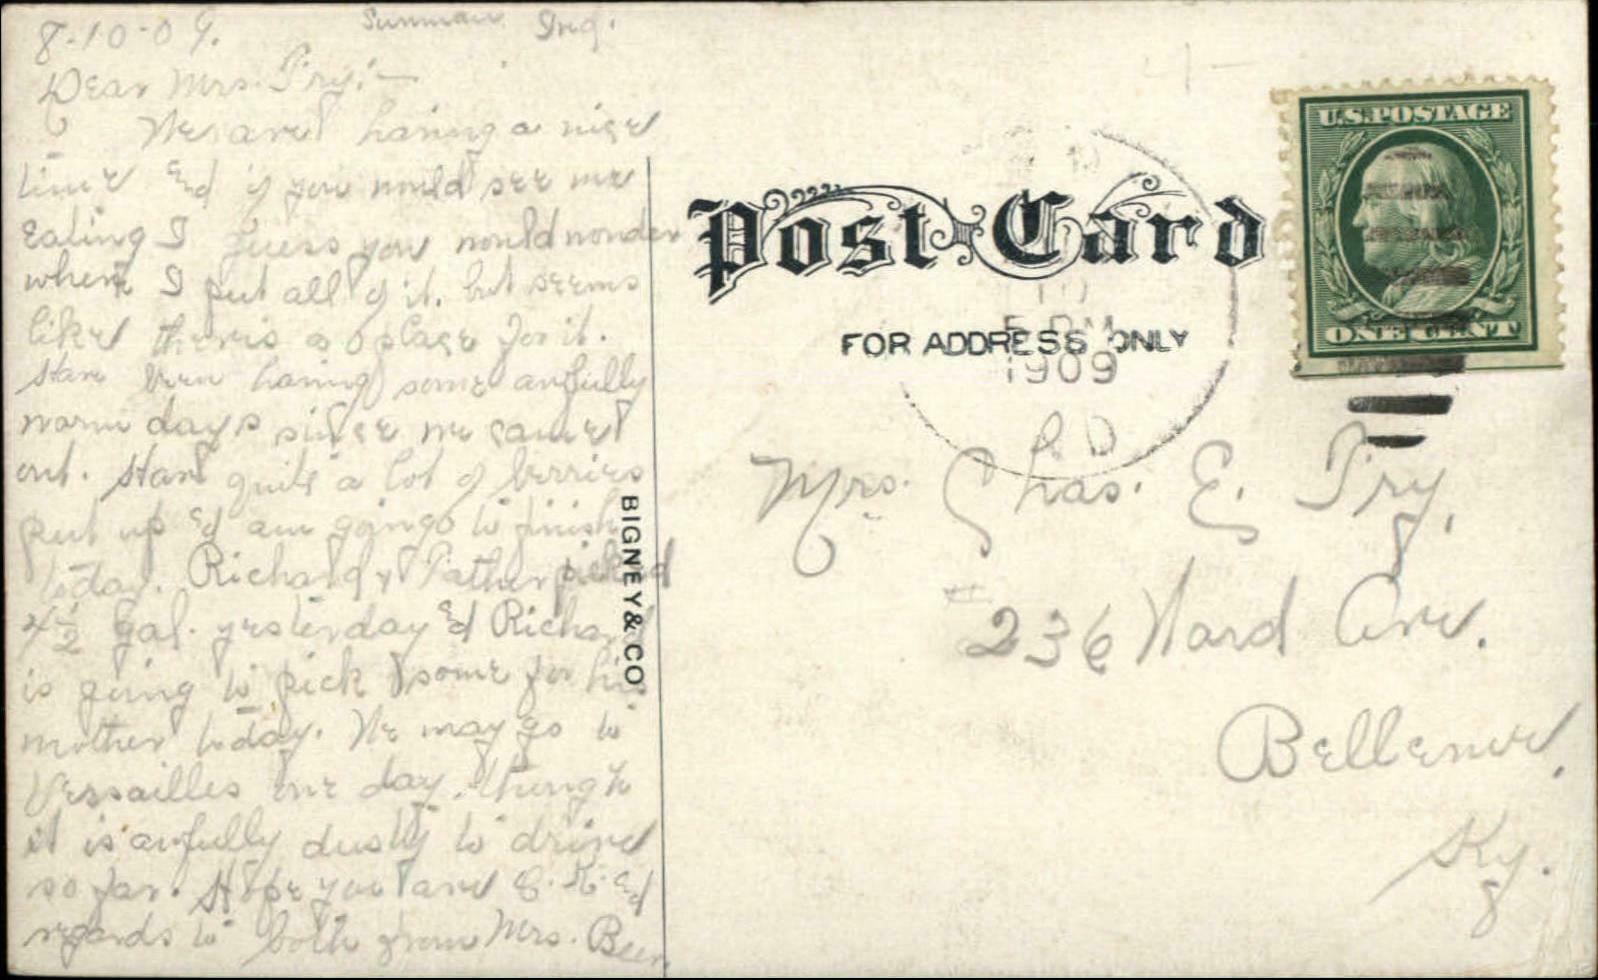 8-10-09. Sunman Ind.
Dear Mrs. Fry:—
We are having a nice
time & if you would see me
eating I guess you would wonder
where I put all of it. but seems
like there is a place for it.
Have been having some awfully
warm days since we came
out. Have quite a lot of berries
put up & am going to finish
today. Richard & Father picked
4½ Gal. yesterday & Richard
is going to pick some for his
mother today. We may go to
Versailles one day, though
it is awfully dusty to drive
so far. Hope you are O.K. &
regards to both from Mrs. Beer.
BIGNEY & CO.
U.S. POSTAGE
ONE CENT
Post Card
FOR ADDRESS ONLY
10
5 PM
1909
R.D
Mrs. Chas. E. Fry,
# 236 Ward Ave.
Bellevue,
Ky.